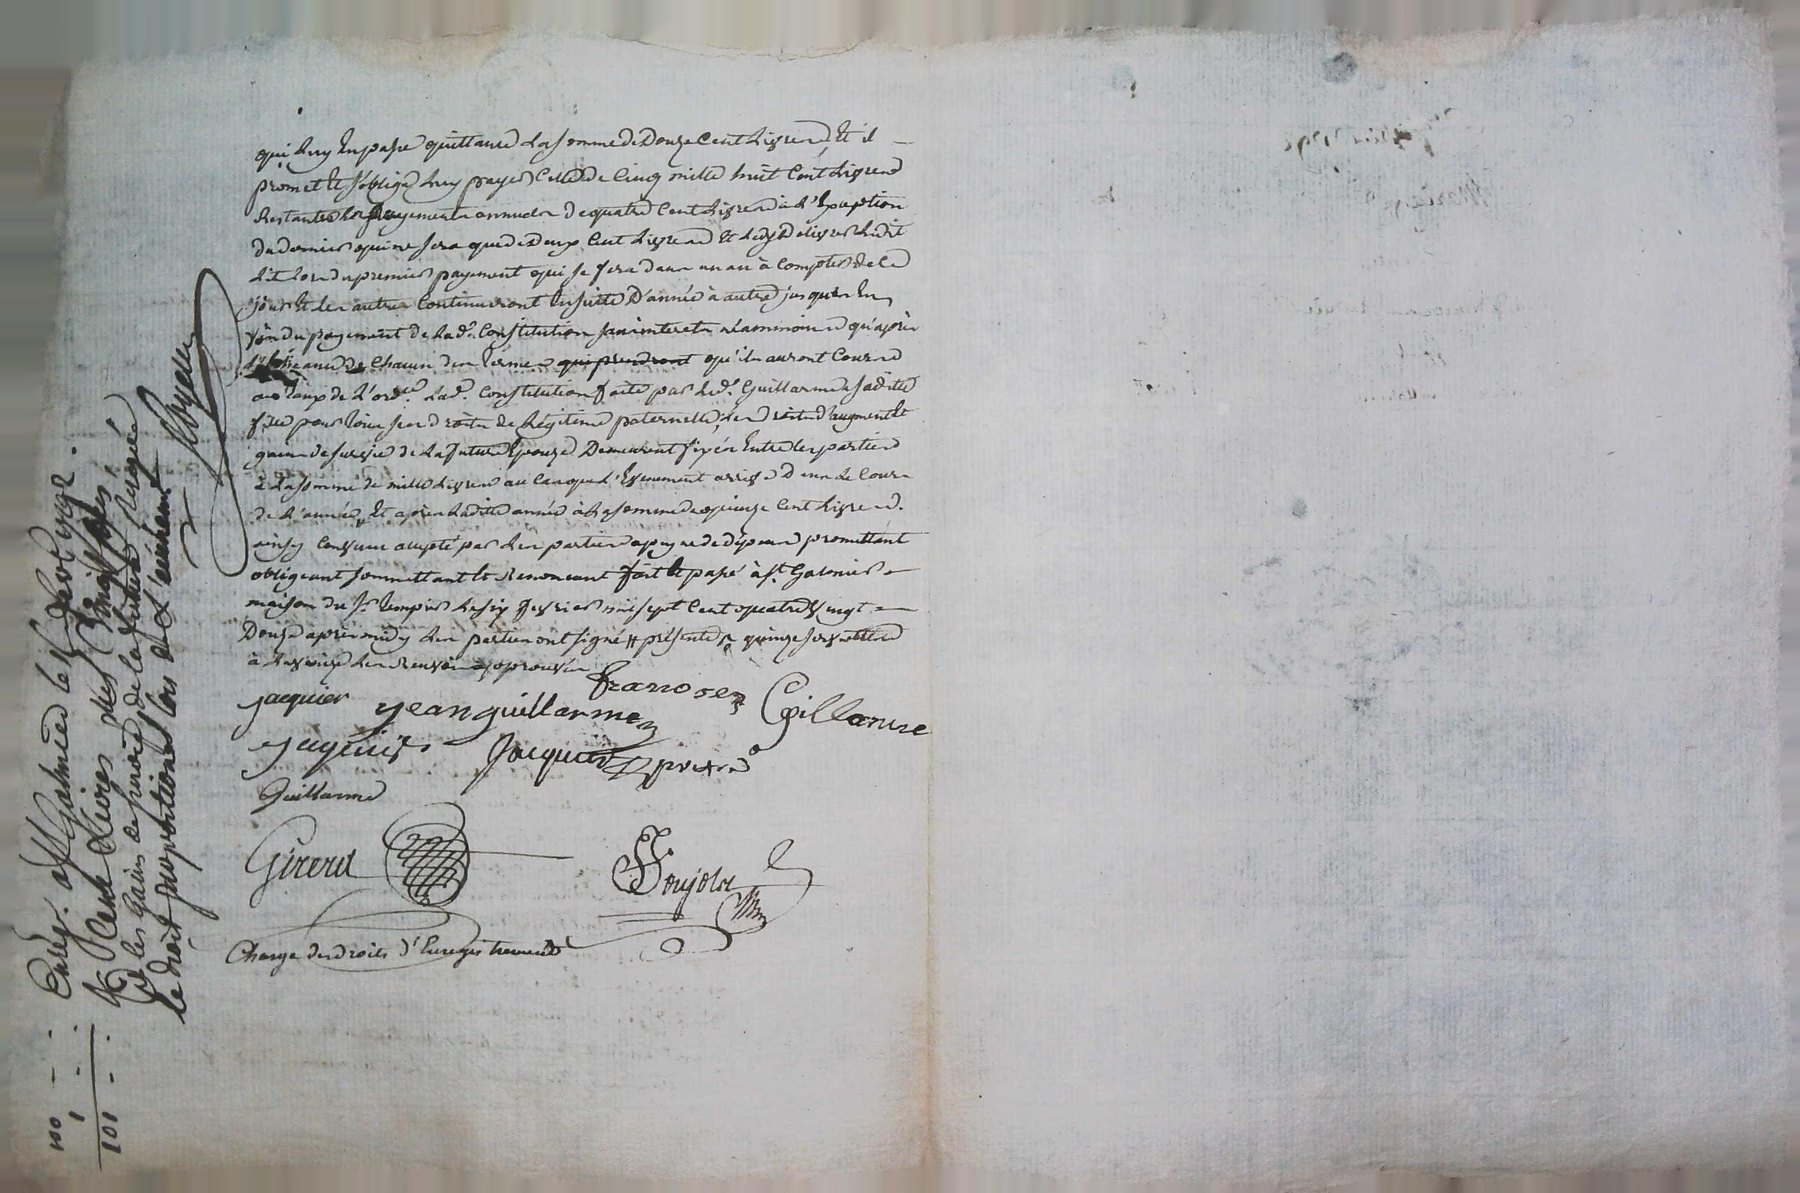 qui luy en passe quittance la somme de Douze Cent Livres, Et il
promet et s'oblige luy payer Celle de Cinq mille huit Cent Livres
Restantes en payements annuels de quatre Cent Livres à l'Exception
du dernier qui ne sera que de deux Cent Livres Et led. Delivrer ledit
Lit lors du premier payement qui se fera dans un an à Compter de Ce
jour Et les autres Continueront Ensuitte D'année à autre jusqu'en
fin du payement de lad.e Constitution sans interets néammoins qu'après
de Chacun des Termes qui prendront qu'ils auront Cours
au taux de l'ord.ce Lad.e Constitution faite par led.t Guillarme à sadite
fille pour Tous ses droits de Légitime paternelle, Les droits d'augment et
gains de survie de la future Epouse Demeurent fixés Entre les parties
à la somme de mille Livres au Cas que l'Evenement arrive Dans le Cours
de l'année, Et après ladite année à la somme de quinze Cent Livres.
ainsy Convenu accepté par les parties à peyne de dépens promettant
obligeant soumettant et Renonçant fait et passé à S.t Galmier
maison du S.r le six fevrier mil sept Cent quatre vingt
Douze après midy Les parties ont signé # présente quinze serviettes
à les Renvois approuvés
jacquier Jean guillarme françoise Guillarme
Jaquier Jacquier
Guillarme
Girerd
Pujolat
Charge des droits d'Enregistrement
Enreg. a St Galmier le
Cent Livres
Et les Gains de survie de la future
le droit proportionel lors de L'événement
100
1
101